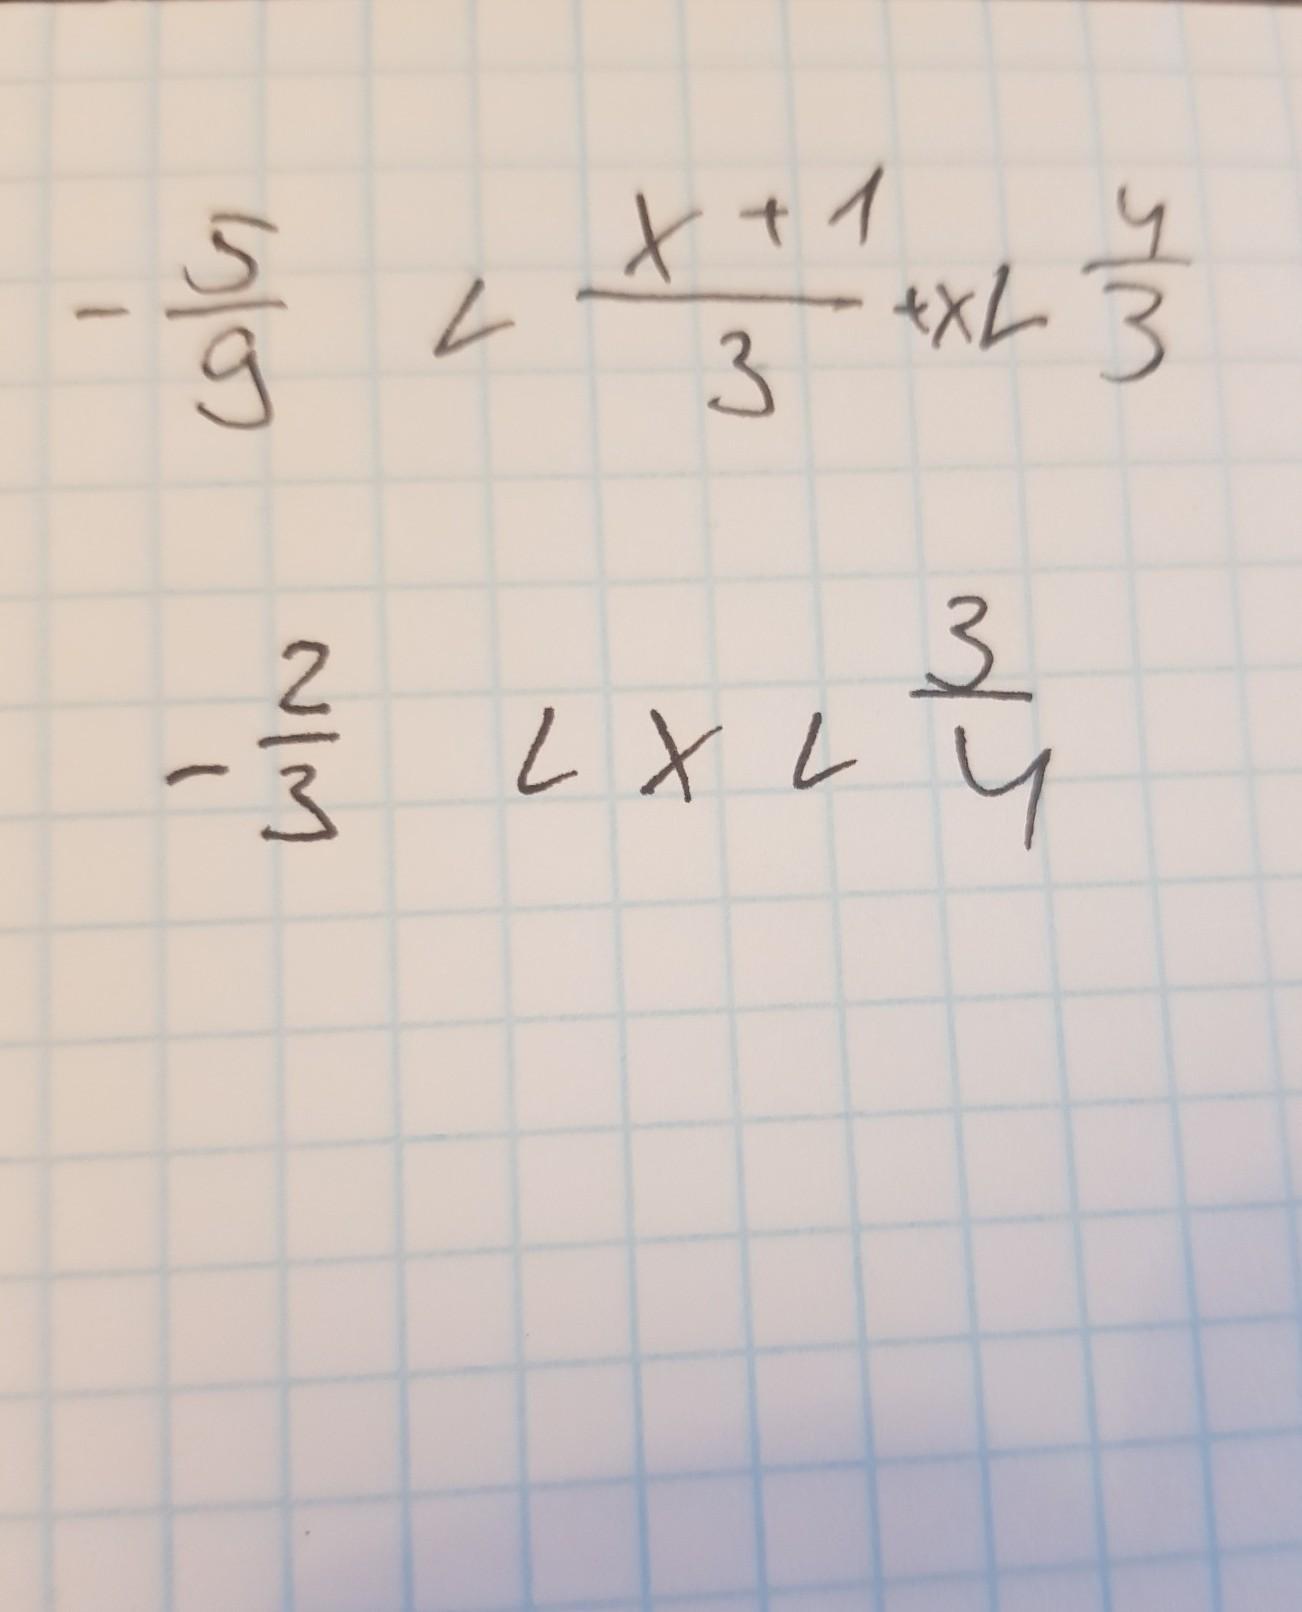 -5/9 < (x+1)/3 +x< 4/3
-2/3 < x < 3/4